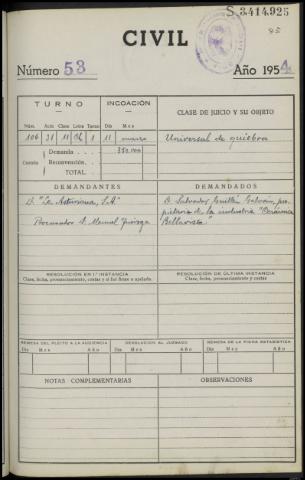 S 3414,925
95
CIVIL
Número 53
Año 1954
TURNO
INCOACIÓN
CLASE DE JUICIO Y SU OBJETO
Núm. Auto Clase Letra Turno Día Mes
106 31 11 Ch 1 11 marzo Universal de quiebra
Demanda . . . 350.000
Cuantía Reconvención.
TOTAL.
DEMANDANTES
DEMANDADOS
D. "La Asturiana, S.A."
Procurador S. Manuel
D. Salvador Guillén Galván, pro-
pietario de la industria "Cerámica
Bellavista"
RESOLUCIÓN EN 1.ª INSTANCIA
Clase, fecha, pronunciamiento, costas y si fué firme o apelada.
RESOLUCIÓN DE ÚLTIMA INSTANCIA
Clase, fecha, pronunciamiento y costas
REMESA DEL PLEITO A LA AUDIENCIA
DEVOLUCIÓN AL JUZGADO
REMESA DE LA FICHA ESTADÍSTICA
Día Mes Año Día Mes Año Día Mes Año
NOTAS COMPLEMENTARIAS
OBSERVACIONES